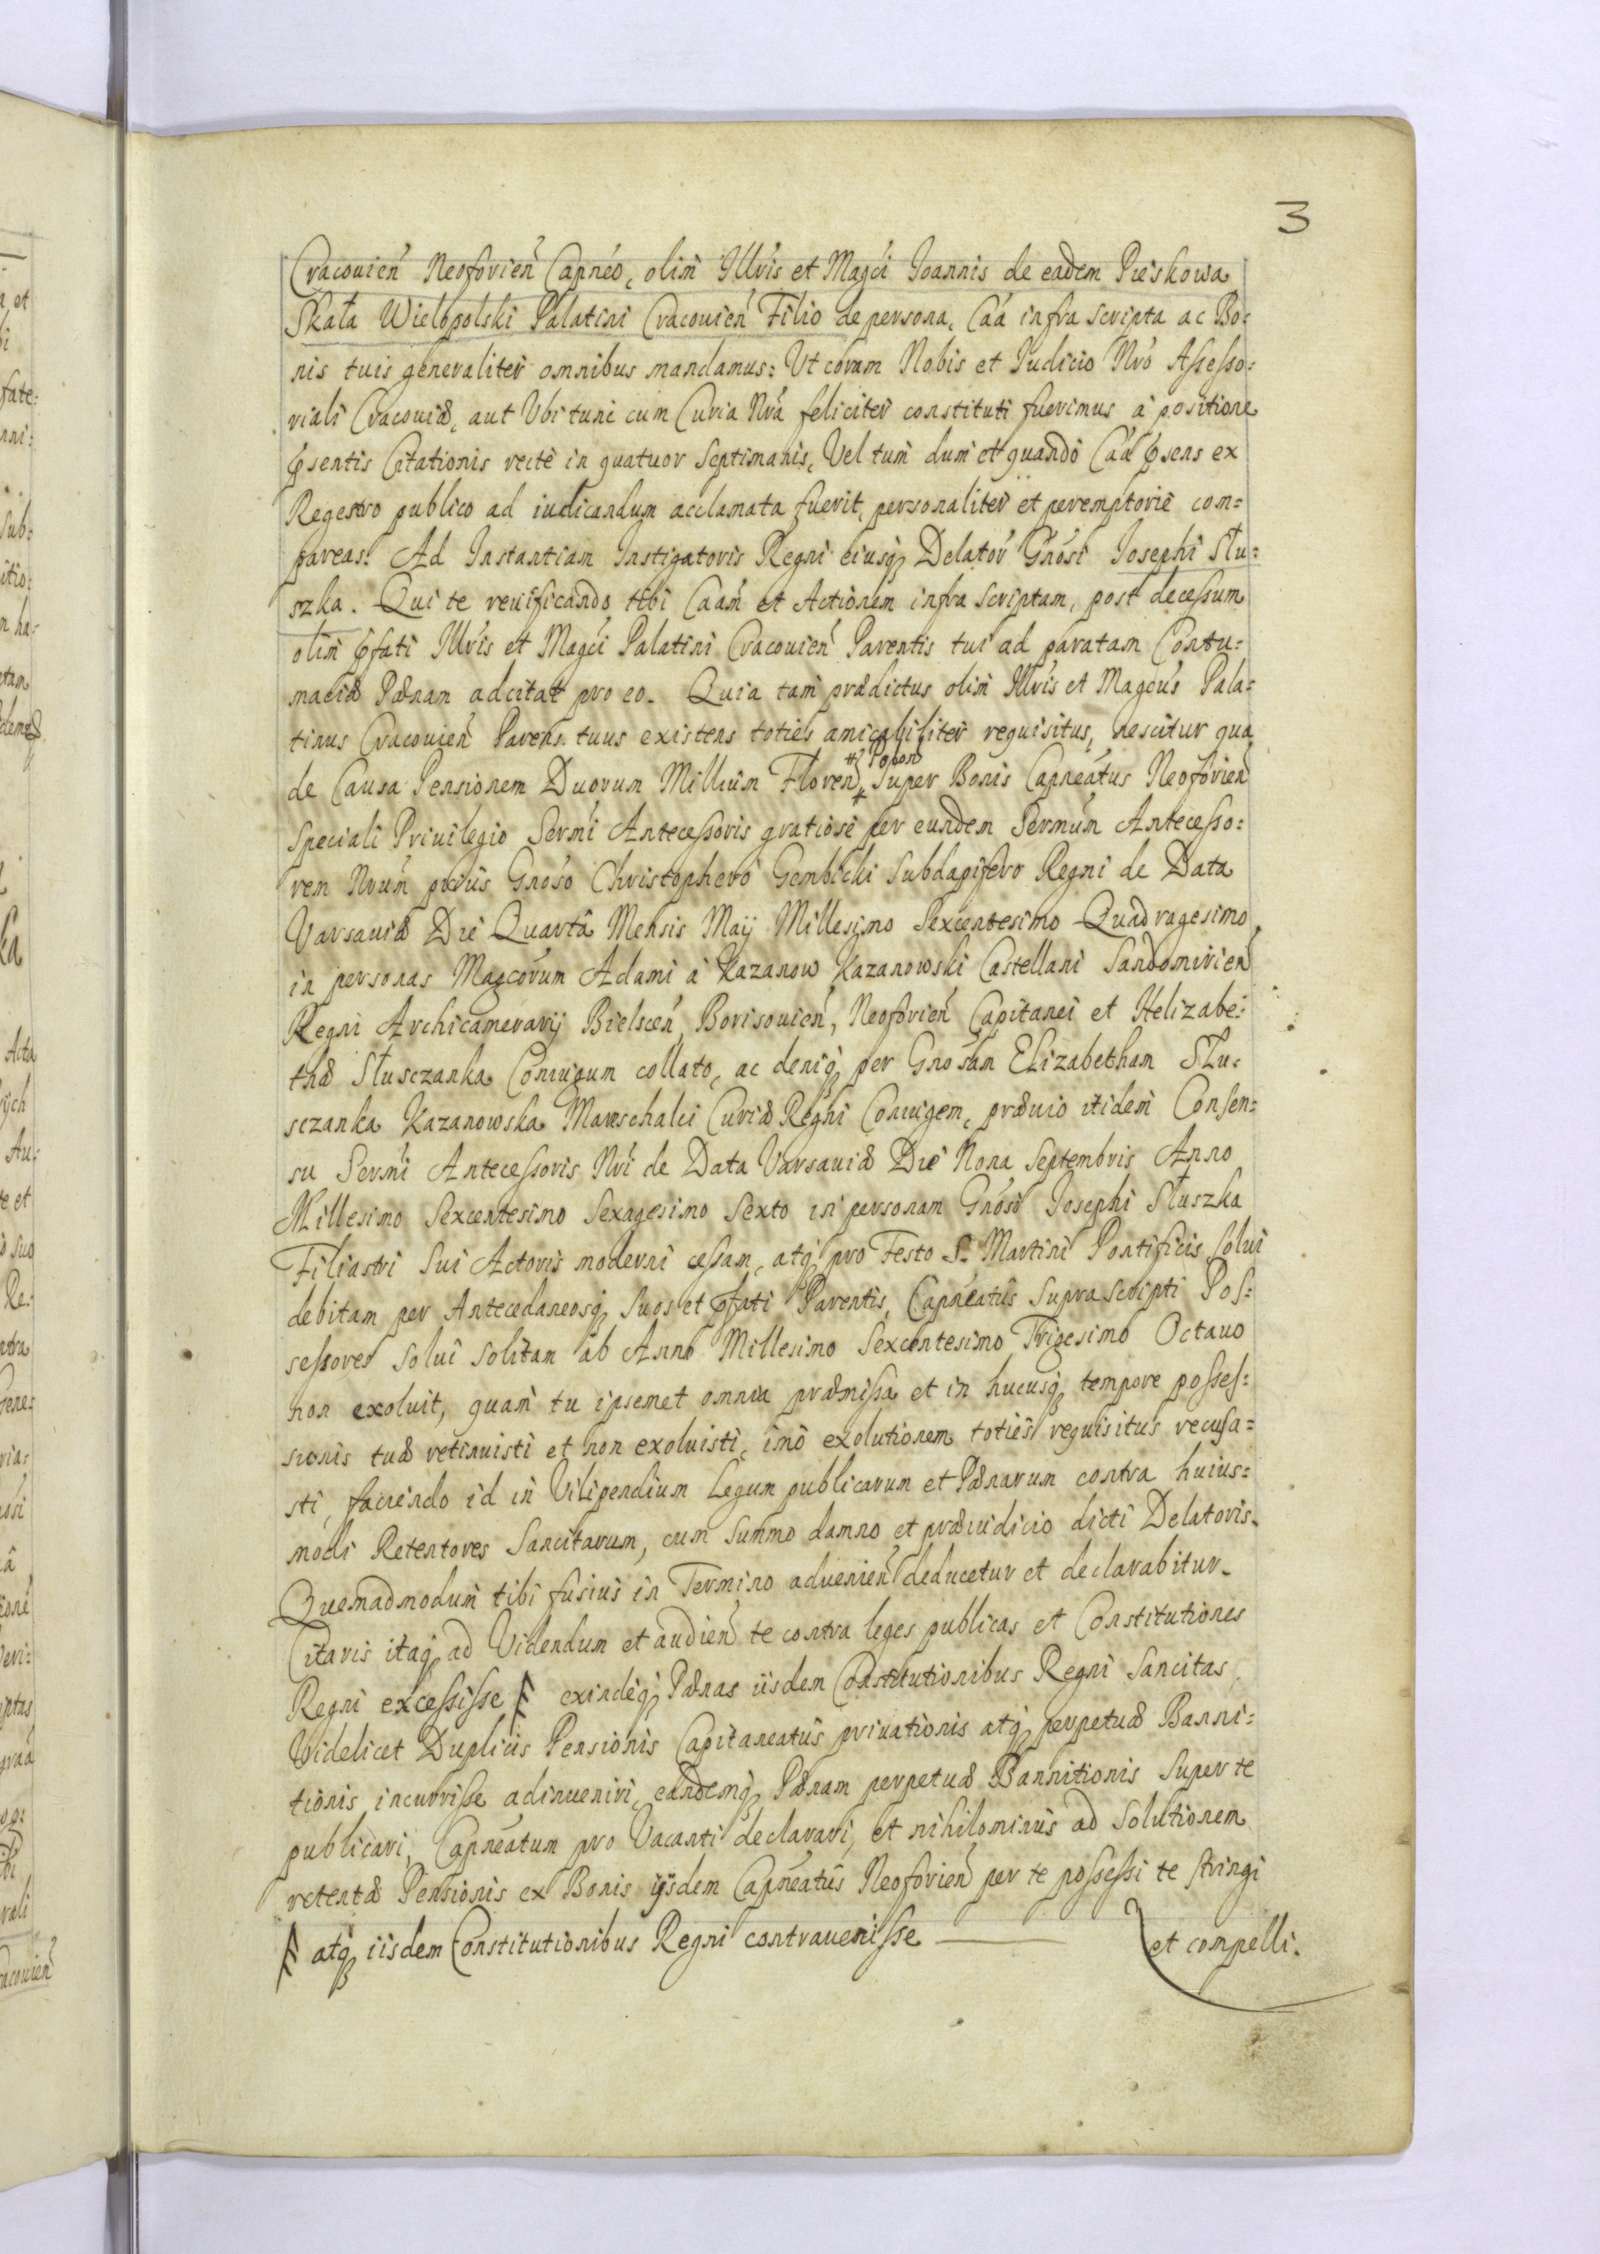 3
Cracouień Neoforień Capnéo, olim Illris et Magći Ioannis de eadem Pieskowa
Skała Wielopolski Palatini Cracouień Filio de persona, Caá infra scripta ac Bo:
nis tuis generaliter omnibus mandamus: Ut coram Nobis et Iudicio Nró Assesso:
riali Cracouiæ, aut Ubi tunc cum Curia Nrá feliciter constituti fuerimus à positione
pñsentis Citationis recte in quatuor Septimanis, Vel tum dum et quando Caá pñsens ex
Regestro publico ad iudicandum acclamata fuerit, personaliter et peremptorie com=
pareas. Ad Instantiam Instigatoris Regni eiusq Delatoŕ Gnósi Iosephi Słu=
szka. Qui te reuificando tibi Caam et Actionem infra scriptam, post decessum
olim pfati Illris et Magći Palatini Cracouień Parentis tui ad paratam Contu=
maciæ Pænam adcitat pro eo. Quia tam prædictus olim Illris et Magcus Pala=
tinus Cracouień Parens tuus existens toties amicabiliter requisitus, nescitur qua
de Causa Pensionem Duorum Millium Floreń Super Bonis Capneatus Neoforień
# Polon
speciali Priuilegio Sermi Antecessoris gratiose per eundem Sermum Antecesso:
rem Nrum prius Gnoso Christophero Gembicki Subdapifero Regni de Data
Varsauiæ Die Quarta Mensis Maij Millesimo Sexcentesimo Quadragesimo,
in personas Magcorum Adami à Kazanow Kazanowski Castellani Sandomirień
Regni Archicamerarij Bielsceń, Borisouień, Neoforień Capitanei et Helizabe:
thæ Słusczanka Coniugum collato, ac deniq per Gnosam Elizabetham Słu:
sczanka Kazanowska Mareschalci Curiæ Regni Coniugem, præuio itidem Consen=
su Sermi Antecessoris Nri de Data Varsauiæ Die Nona Septembris Anno
Millesimo Sexcentesimo Sexagesimo Sexto in personam Gnosi Iosephi Słuszka
Filiastri Sui Actoris moderni cessam, atq pro Festo S. Martini Pontificis solui
debitam per Antecedaneosq Suos et pfati Parentis, Capneatus Suprascripti Pos=
sessores solui solitam ab Anno Millesimo Sexcentesimo Trigesimo Octauo
non exoluit, quam tu ipsemet omnia præmissa et in hucusq tempore posses=
sionis tuæ retinuisti et non exoluisti, imo exolutionem toties requisitus recusa=
sti, faciendo id in Vilipendium Legum publicarum et Pænarum contra huius=
modi Retentores Sancitarum, cum Summo damno et præiudicio dicti Delatoris.
Quemadmodum tibi fusius in Termino aduenień deducetur et declarabitur.
Citaris itaq ad Videndum et audień te contra leges publicas et Constitutiones
Regni excessisse # exindeq Pænas iisdem Constitutionibus Regni Sancitas,
Videlicet Duplicis Pensionis Capitaneatus priuationis atq perpetuæ Banni=
tionis incurrisse adinueniri, eandemq Pænam perpetuæ Bannitionis Super te
publicari, Capneatum pro Vacanti declarari, et nihilominus ad Solutionem
retentæ Pensionis ex Bonis ijsdem Capneatus Neoforień per te possessi te stringi
# atq iisdem Constitutionibus Regni contrauenisse — et compelli.